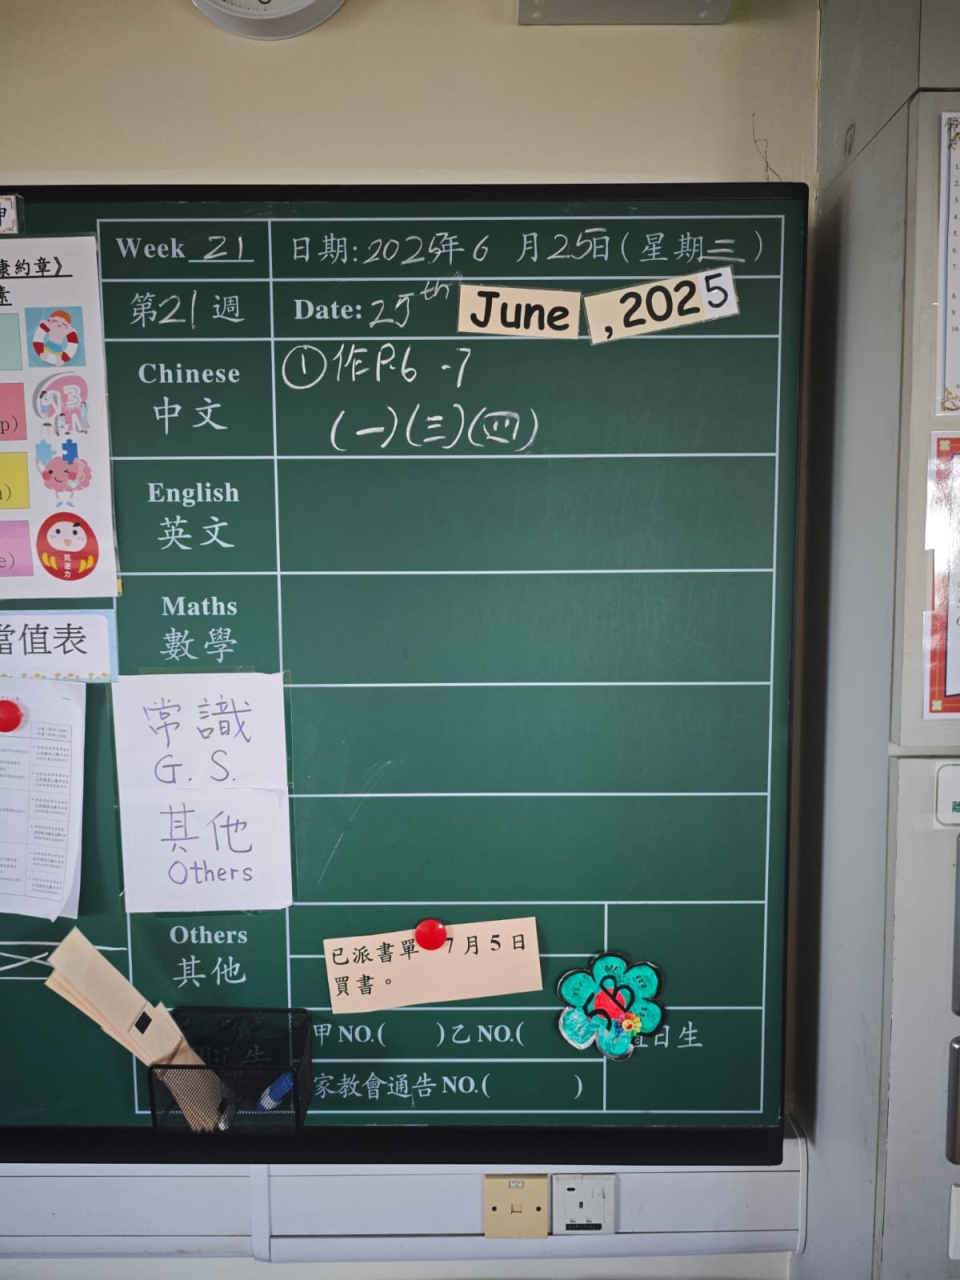 康約章》
素
當值表
Week 21
日期: 2025年 6 月 25日 ( 星期三 )
第 21 週
Date: 25th June , 2025
Chinese
中文
① 作 P.6 - 7
(一) (三) (四)
English
英文
Maths
數學
常識
G. S.
其他
Others
Others
其他
已派書單 7月5日
買書。
甲 NO.( ) 乙 NO.(
日生
家教會通告 NO.( )